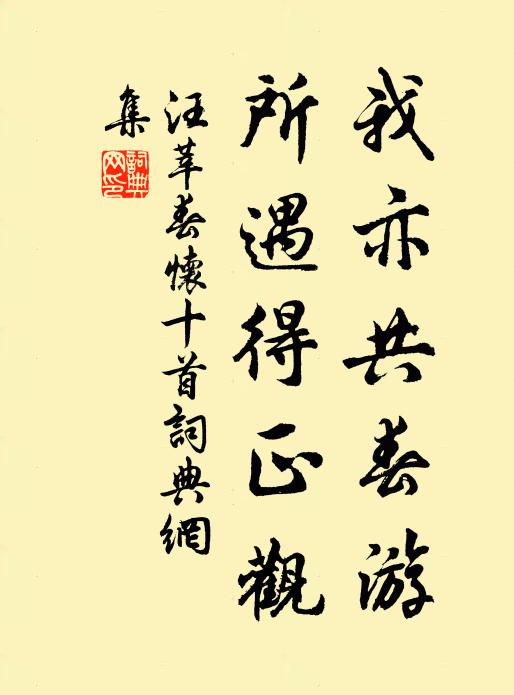 我亦共春游
所遇得正觀
汪莘春懷十首詞典網
集
詞典
網印